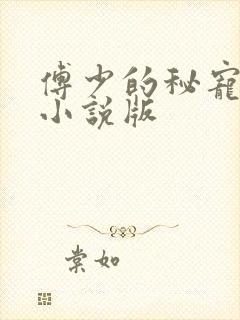 傅少的秘寵
小說版
棠如